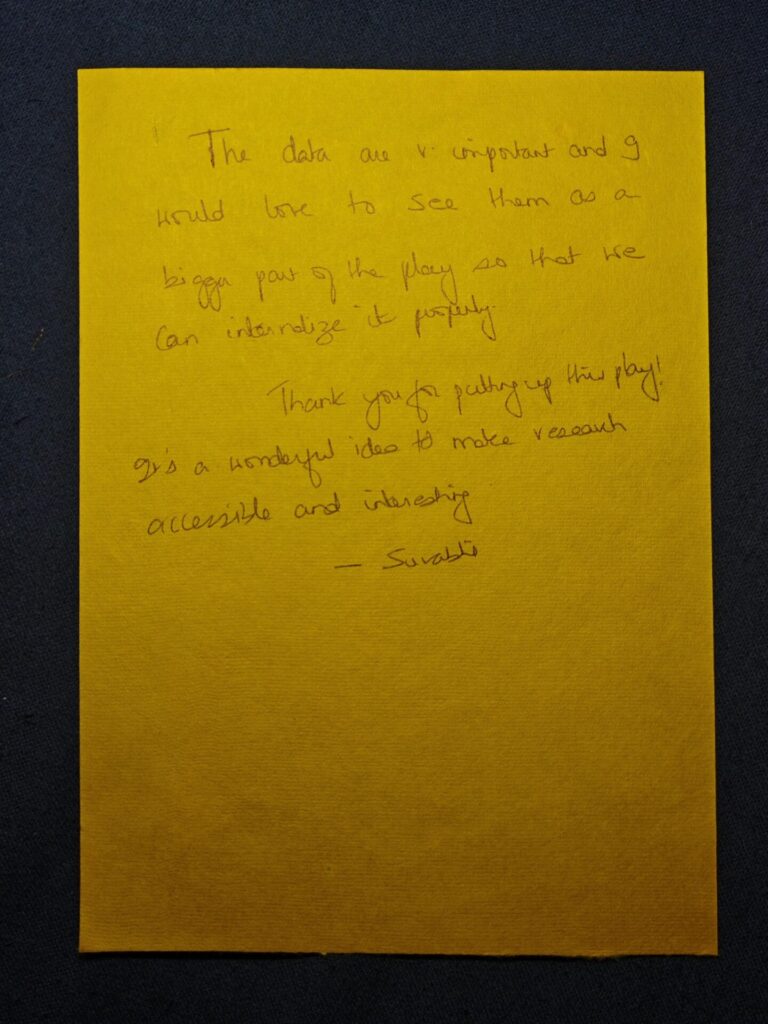 The data are v. important and I
would love to see them as a
bigger part of the play so that we
can internalize it properly.
Thank you for putting up this play!
It's a wonderful idea to make research
accessible and interesting
— Surabhi